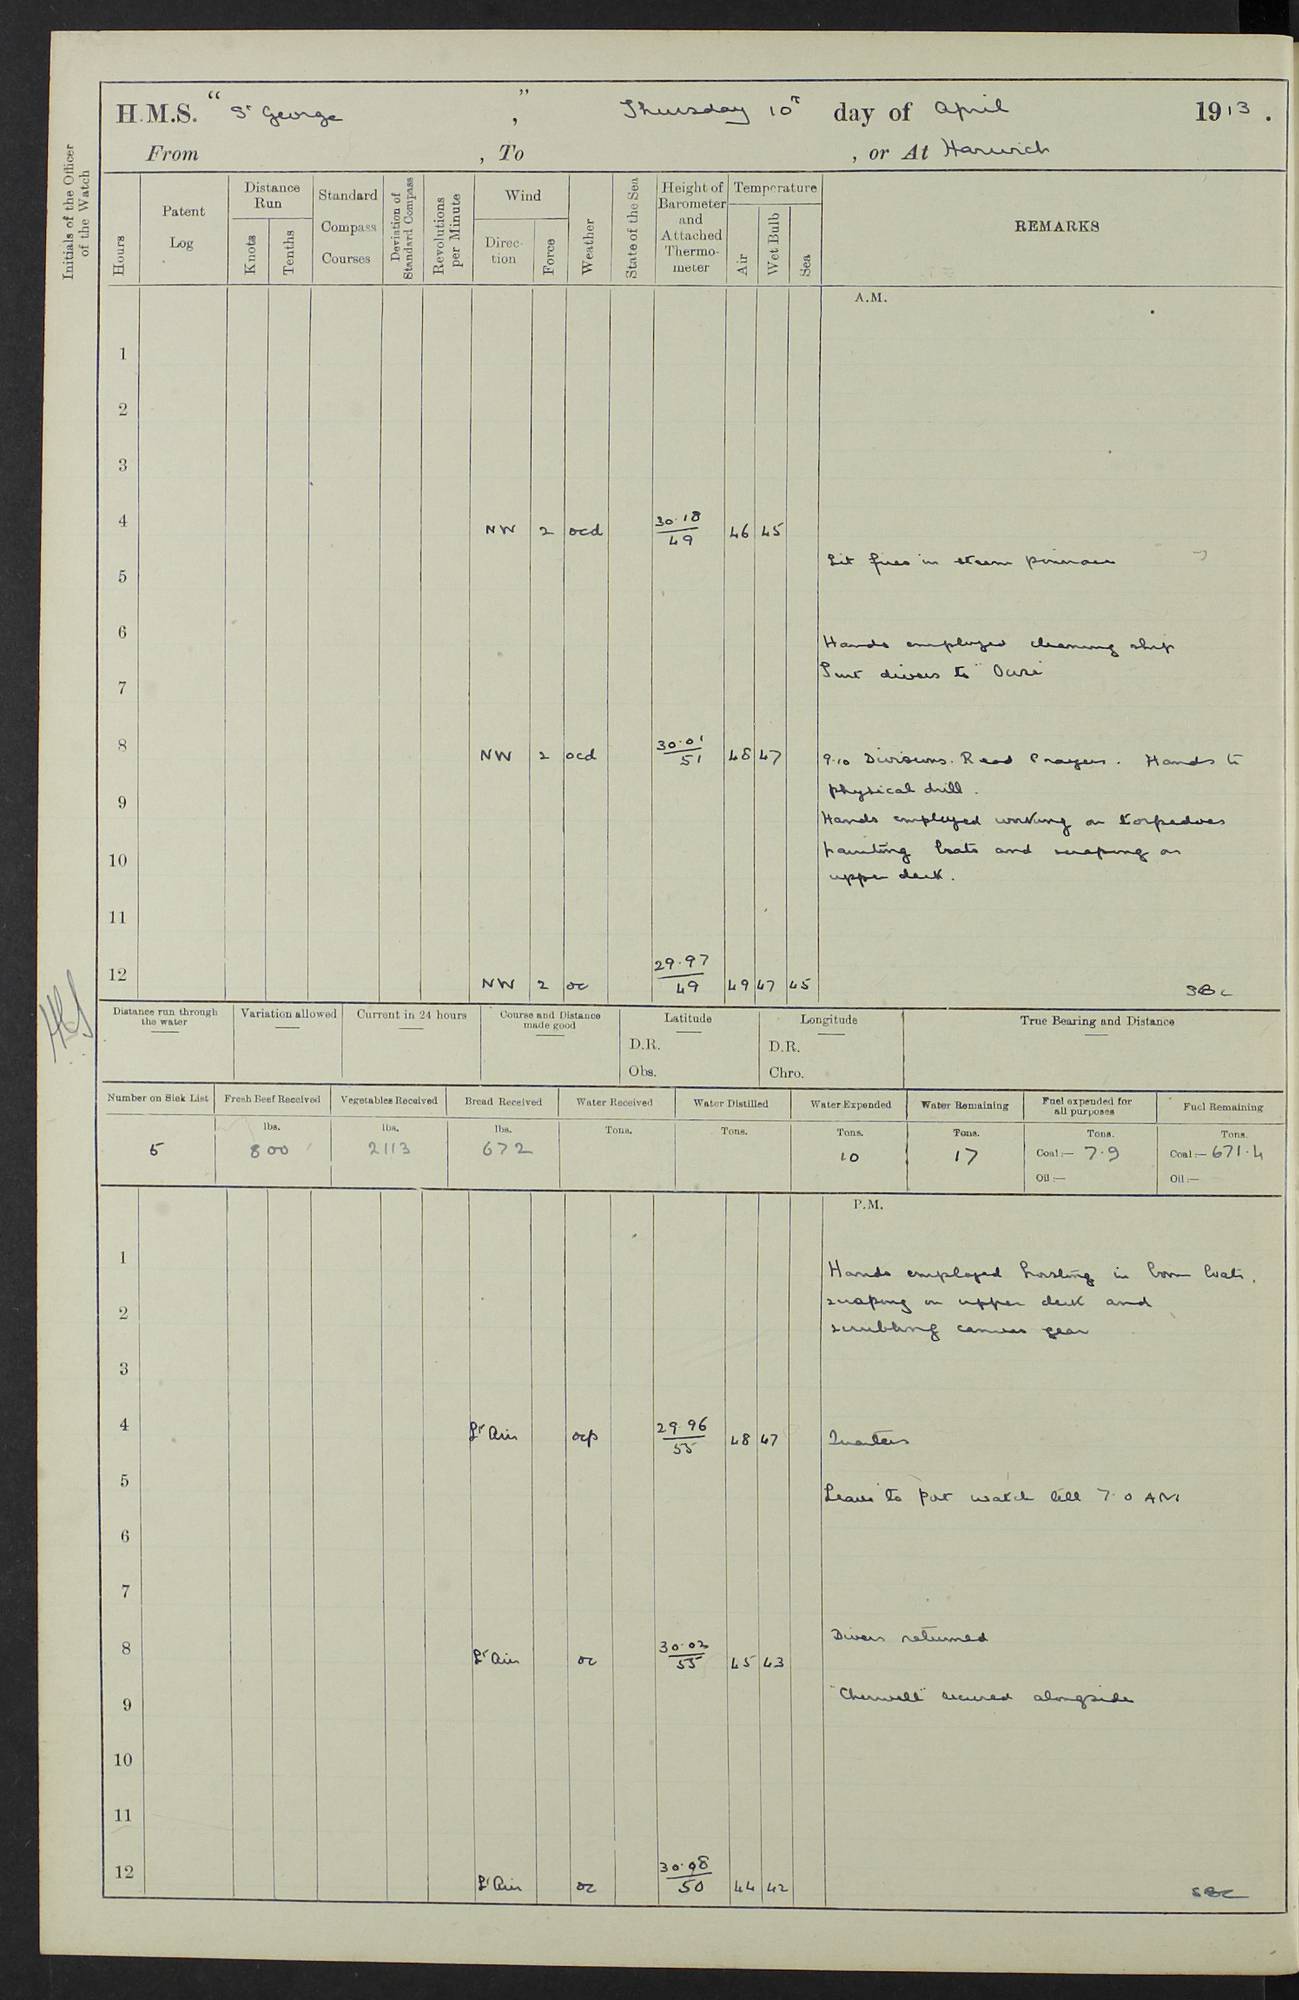 H.M.S. "St George", Thursday 10th day of April 1913.
From , To , or At Harwich
Initials of the Officer of the Watch
Hours
Patent Log
Distance Run
Knots
Tenths
Standard Compass Courses
Deviation of Standard Compass
Revolutions per Minute
Wind
Direction
Force
Weather
State of the Sea
Height of Barometer and Attached Thermometer
Temperature
Air
Wet Bulb
Sea
REMARKS
A.M.
1
2
3
4 NW 2 ocd 30.18 49 46 45
Lit fires in steam pinnace
5
6
Hands employed cleaning ship
Sent divers to "
7
8 NW 2 ocd 30.01 51 48 47 9.10 Divisions. Read Prayers. Hands to
physical drill.
9
Hands employed working on torpedoes
10 painting boats and scraping on
upper deck.
11
12 NW 2 oc 29.97 49 49 47 45
SBC
Distance run through the water
Variation allowed
Current in 24 hours
Course and Distance made good
Latitude
D.R.
Obs.
Longitude
D.R.
Chro.
True Bearing and Distance
Number on Sick List
5
Fresh Beef Received
lbs.
800
Vegetables Received
lbs.
2113
Bread Received
lbs.
672
Water Received
Tons.
Water Distilled
Tons.
Water Expended
Tons.
10
Water Remaining
Tons.
17
Fuel expended for all purposes
Tons.
Coal:— 7.9
Oil:—
Fuel Remaining
Tons.
Coal:— 671.4
Oil:—
P.M.
1
Hands employed hoisting in boom boats,
2 scraping on upper deck and
scrubbing canvas gear
3
4 Lt Air ocp 29.96 55 48 47 Quarters
5
Leave to Port watch till 7.0 AM
6
7
8 Lt Air oc 30.02 55 45 43 Divers returned
9 "Cherwell" secured alongside
10
11
12 Lt Air oc 30.08 50 44 42
SBC